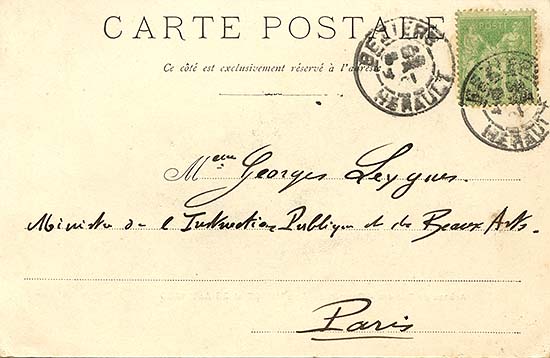 CARTE POSTALE
Ce côté est exclusivement réservé à l'adresse
BEZIERS
HERAULT
POSTE
BEZIERS
HERAULT
Mme Georges Leygues.
Ministre de l'Instruction Publique et des Beaux Arts.
Paris